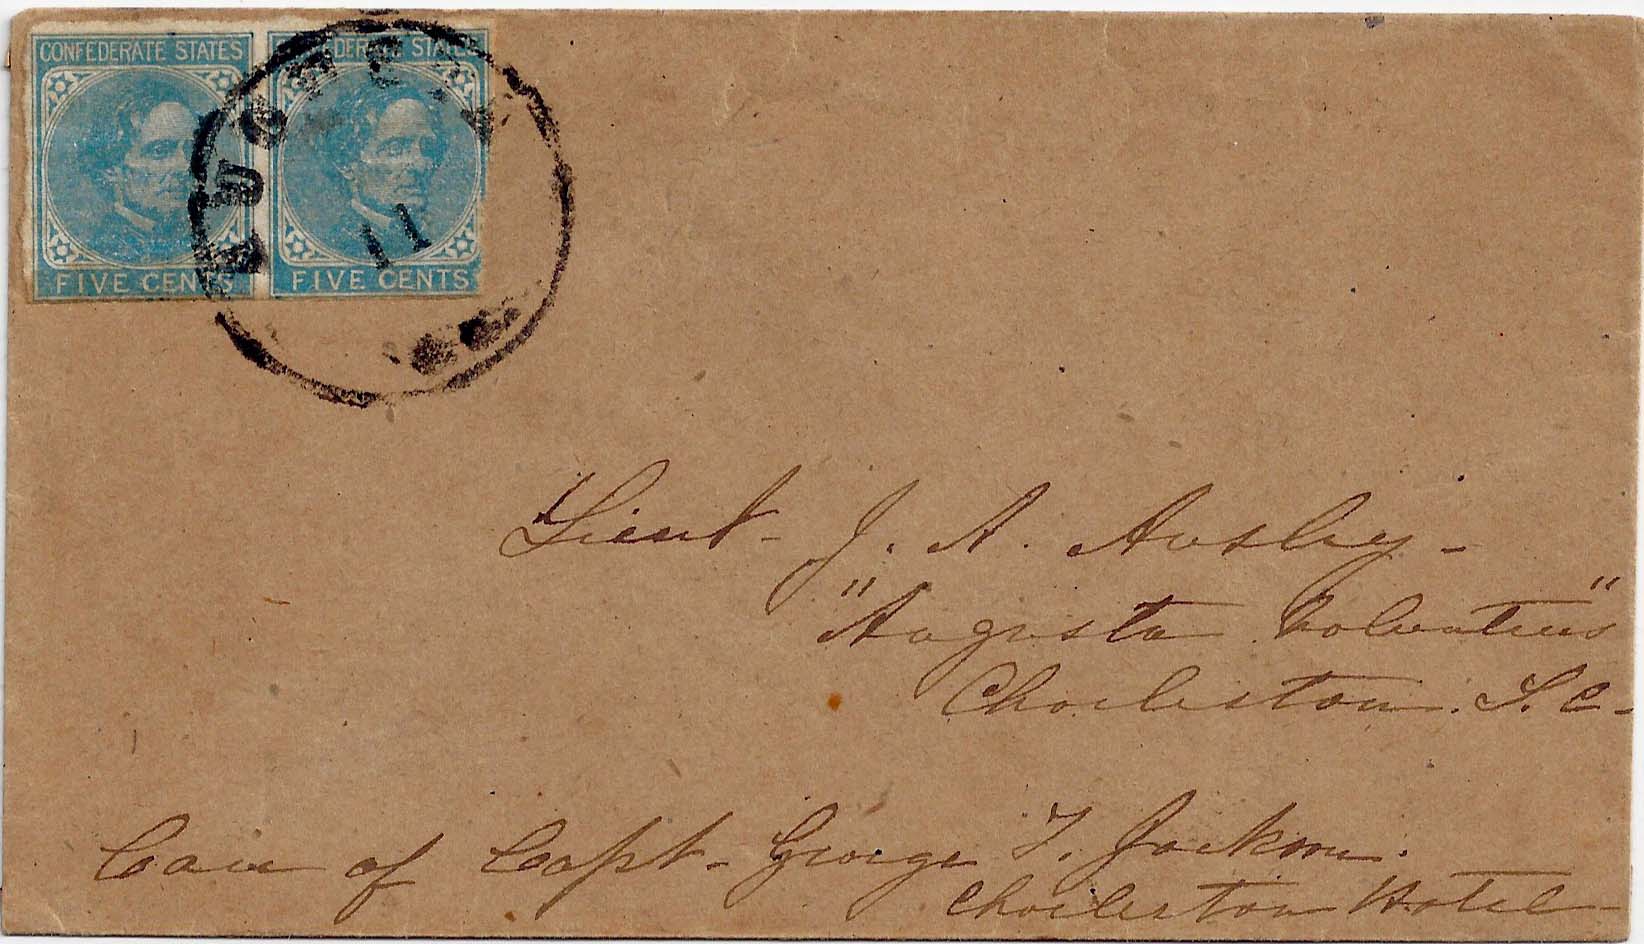 CONFEDERATE STATES
FIVE CENTS
CONFEDERATE STATES
FIVE CENTS
AUGUSTA
11
Lieut- J. A. Ansley-
"Augusta Volunteers"
Charleston. S. C-
Care of Capt- George T. Jackson.
Charleston Hotel-